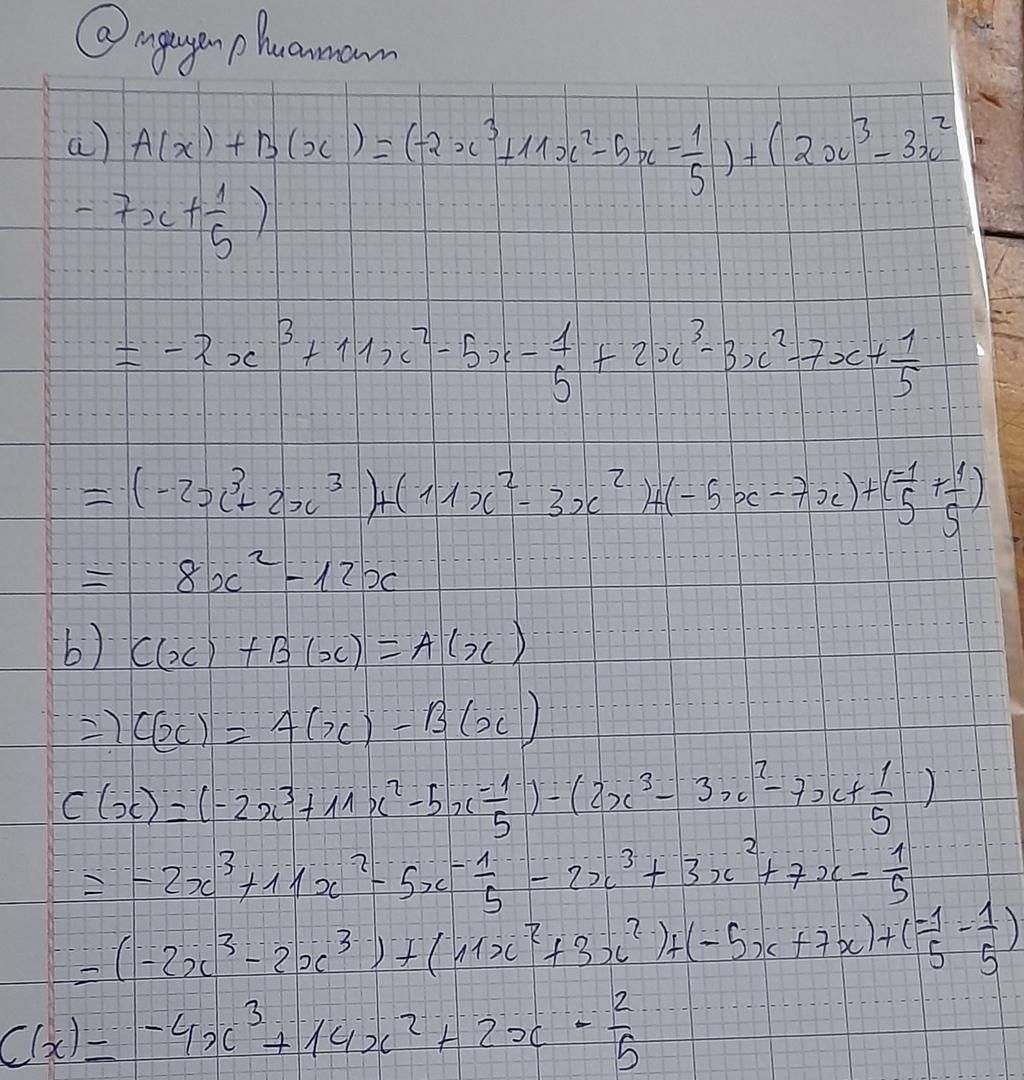 @nguyenphuannam
a) A(x) + B(x) = (-2x³ + 11x² - 5x - 1/5) + (2x³ - 3x²
- 7x + 1/5)
= -2x³ + 11x² - 5x - 1/5 + 2x³ - 3x² - 7x + 1/5
= (-2x³ + 2x³) + (11x² - 3x²) + (-5x - 7x) + (-1/5 + 1/5)
= 8x² - 12x
b) C(x) + B(x) = A(x)
=> C(x) = A(x) - B(x)
C(x) = (-2x³ + 11x² - 5x - 1/5) - (2x³ - 3x² - 7x + 1/5)
= -2x³ + 11x² - 5x - 1/5 - 2x³ + 3x² + 7x - 1/5
= (-2x³ - 2x³) + (11x² + 3x²) + (-5x + 7x) + (-1/5 - 1/5)
C(x) = -4x³ + 14x² + 2x - 2/5